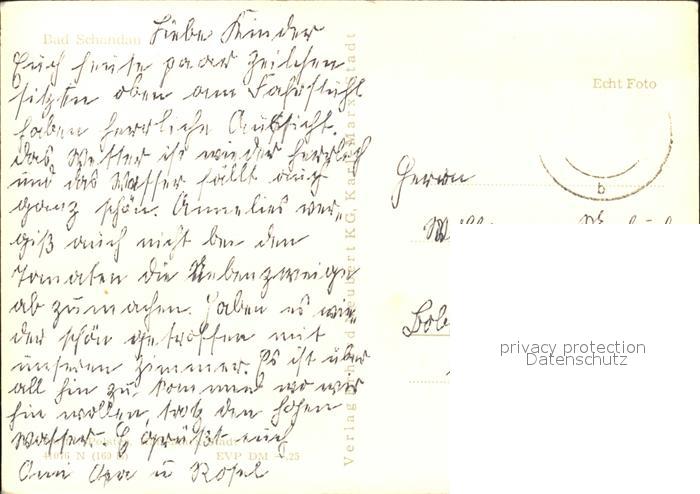 Bad Schandau
Liebe Kinder
Euch heute paar Zeilchen
sitzen oben am Fahrstuhl
haben herrliche Aussicht.
das Wetter ist wieder herrlich
und das Wasser fällt auch
ganz schön. Annelies ver-
giß auch nicht bei den
Tomaten die Nebenzweige
ab zumachen. Haben es wie-
der schön getroffen mit
unseren Zimmer. Es ist über
all hin zu kommen wo wir
hin wollen, trotz den hohen
Wasser. Es grüßt euch
Omi Opa u Rosel
EVP DM
Verlag
KG, Karl-Marx-Stadt
Echt Foto
b
Herrn
privacy protection
Datenschutz